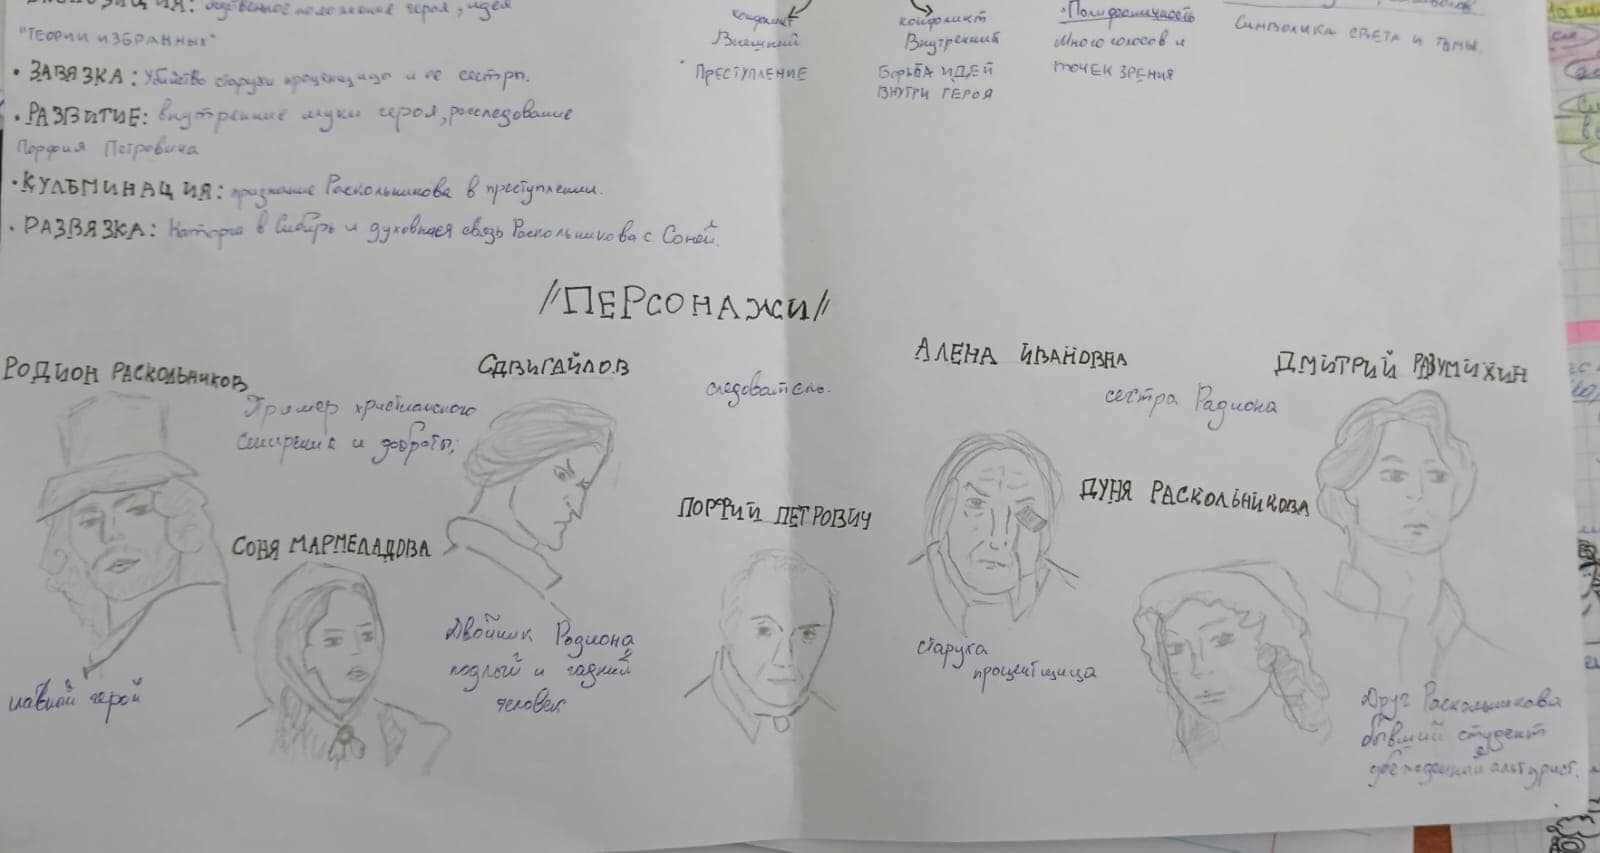 героя, идея
"ТЕОРИИ ИЗБРАННЫХ"
• ЗАВЯЗКА: Убийство старухи процентщицы и ее сестры.
• РАЗВИТИЕ: внутренние муки героя, расследование
Порфия Петровича
• КУЛЬМИНАЦИЯ: признание Раскольникова в преступлении.
• РАЗВЯЗКА: Каторга в Сибирь и духовная связь Раскольникова с Соней.
конфликт
Внешний
ПРЕСТУПЛЕНИЕ
конфликт
Внутренний
Борьба ИДЕЙ
ВНУТРИ ГЕРОЯ
• Полифоничность
Много голосов и
ТОЧЕК ЗРЕНИЯ
СИМВОЛИКА СВЕТА И ТЬМЫ.
//ПЕРСОНАЖИ//
РОДИОН РАСКОЛЬНИКОВ
главный герой
Пример христианского
смирения и доброты,
СОНЯ МАРМЕЛАДОВА
СДВИГАЙЛОВ
Двойник Родиона,
подлый и гадкий
человек
следователь.
ПОРФИЙ ПЕТРОВИЧ
АЛЕНА ИВАНОВНА
старуха
процентщица
сестра Радиона
ДУНЯ РАСКОЛЬНИКОВА
ДМИТРИЙ РАЗУМИХИН
Друг Раскольникова
бывший студент
убежденный альтурист.